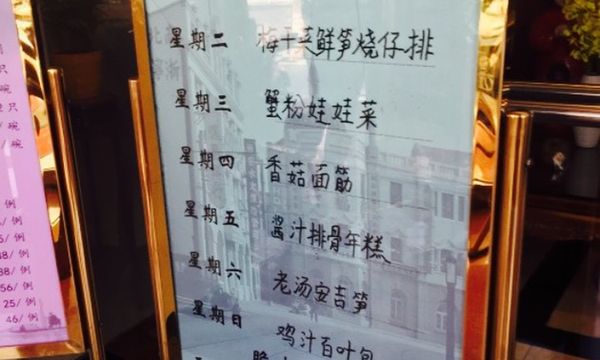 星期二 梅干菜鲜笋烧仔排
星期三 蟹粉娃娃菜
星期四 香菇面筋
星期五 酱汁排骨年糕
星期六 老汤安吉笋
星期日 鸡汁百叶包
只
/碗
/碗
例
/例
/例
/例
88/例
56/例
25/例
46/例